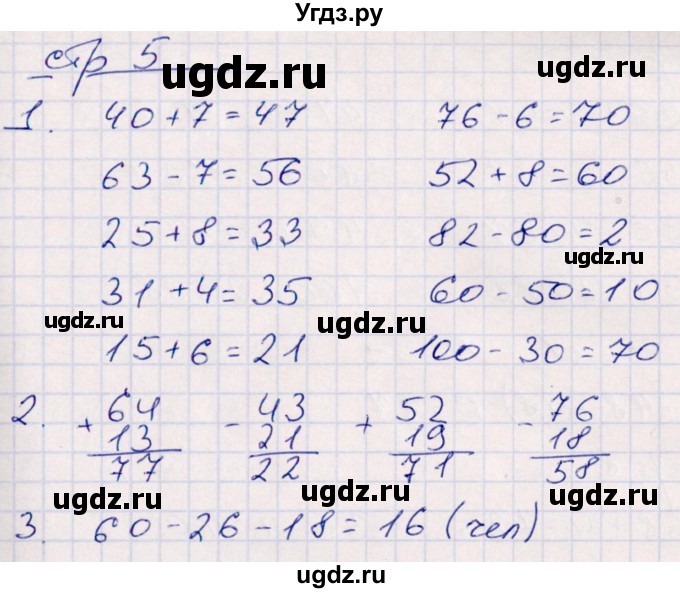 Угдз.ру
стр 5
ugdz.ru
1. 40 + 7 = 47 76 - 6 = 70
63 - 7 = 56 52 + 8 = 60
25 + 8 = 33 82 - 80 = 2
ugdz.ru
31 + 4 = 35 60 - 50 = 10
ugdz.ru ugdz.ru
15 + 6 = 21 100 - 30 = 70
2. + 64 - 43 + 52 - 76
13 21 19 18
77 22 71 58
ugdz.ru ugdz.ru ugdz.ru
3. 60 - 26 - 18 = 16 (чел)
ugdz.ru